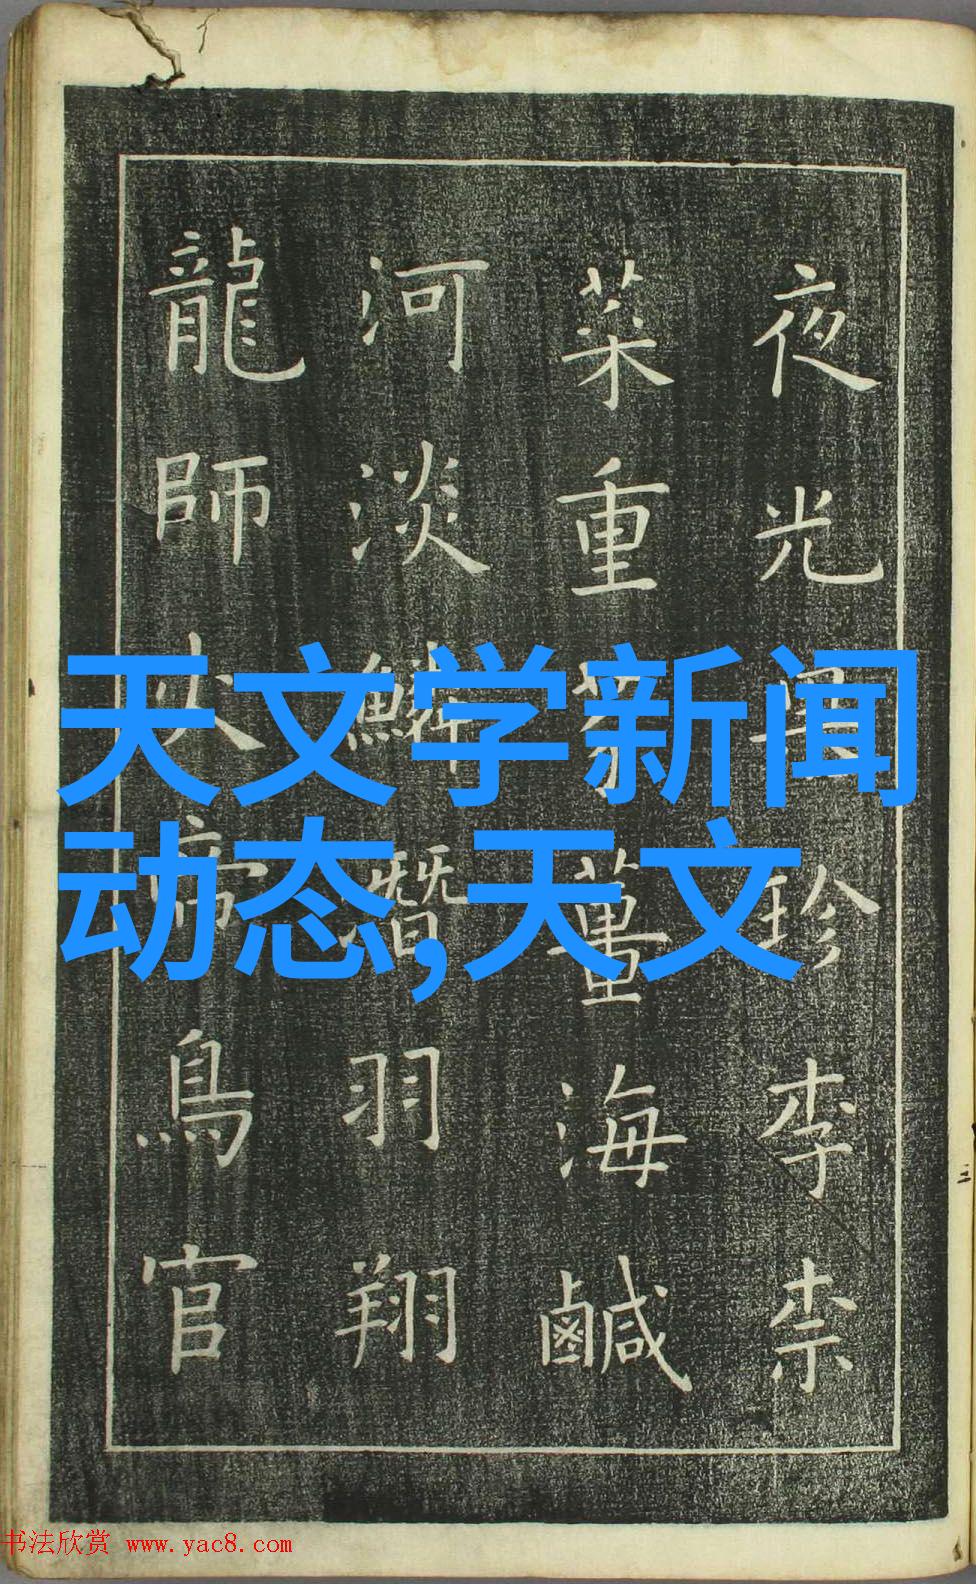 夜光果珍李柰
菜重芥薑海鹹
河淡鱗潛羽翔
龍師火帝鳥官
天文学新闻
动态,天文
书法欣赏 www.yac8.com